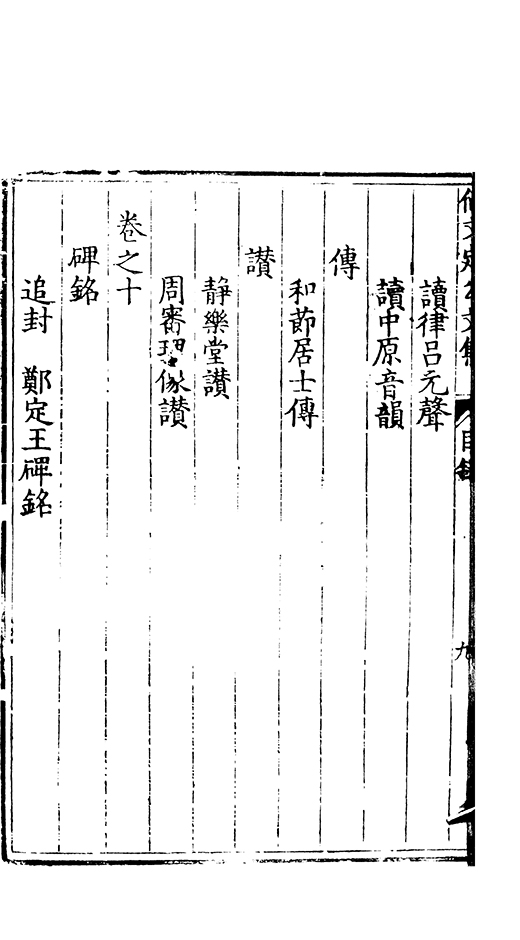 何文定公文集
目錄
九
讀律呂元聲
讀中原音韻
傳
和莭居士傳
讃
靜樂堂讃
周審理像讃
卷之十
碑銘
追封　鄭定王碑銘